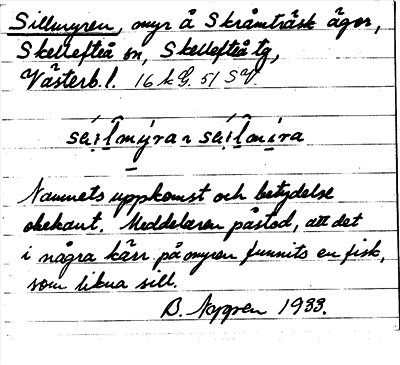 Sillmyren, myr å Skråmträsk ägor,
Skellefteå sn, Skellefteå tg,
Västerb. l. 16 k G. 51 SV.
Namnets uppkomst och betydelse
obekant. Meddelaren påstod, att det
i några kärr på myren funnits en fisk,
som likna sill.
B. Nygren 1933.